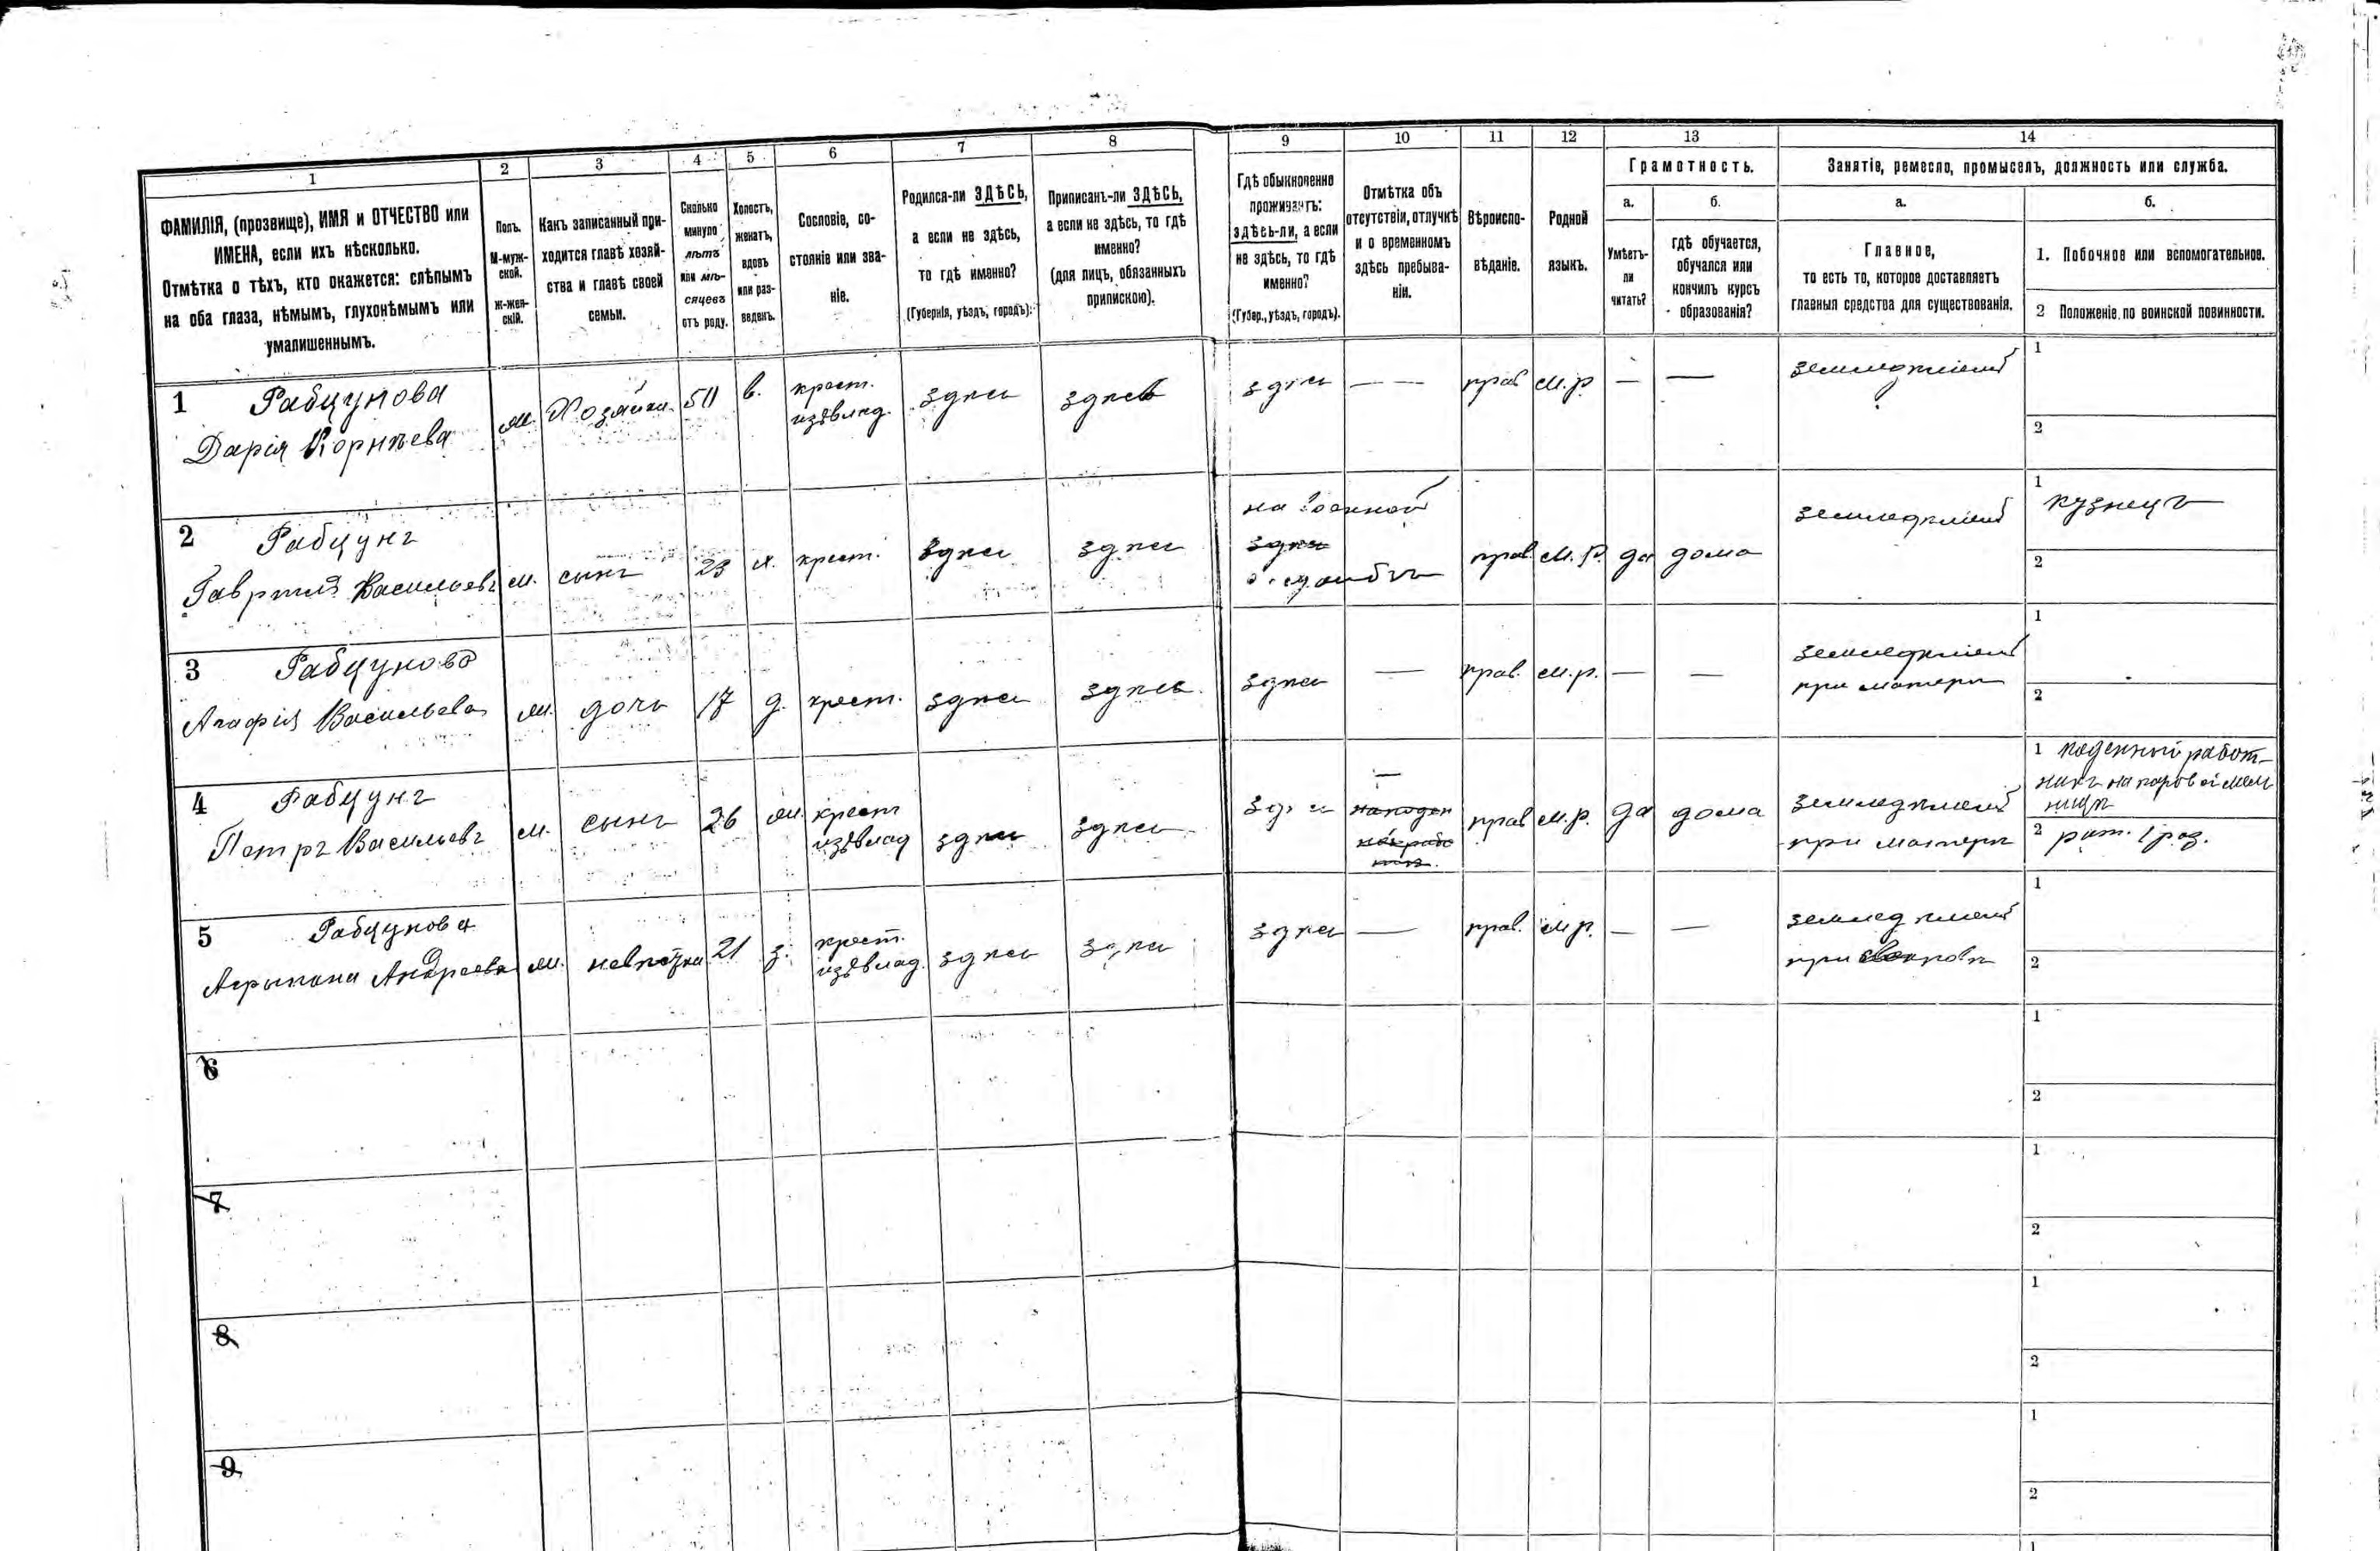 1 2 3 4 5 6 7 8 9 10 11 12 13 14
ФАМИЛІЯ, (прозвище), ИМЯ и ОТЧЕСТВО или
ИМЕНА, если ихъ нѣсколько.
Отмѣтка о тѣхъ, кто окажется: слѣпымъ
на оба глаза, нѣмымъ, глухонѣмымъ или
умалишеннымъ.
Полъ.
М-муж-
ской.
Ж-жен-
скій.
Какъ записанный при-
ходится главѣ хозяй-
ства и главѣ своей
семьи.
Сколько
минуло
лѣтъ
или мѣ-
сяцевъ
отъ роду.
Холостъ,
женатъ,
вдовъ
или раз-
веденъ.
Сословіе, со-
стояніе или зва-
ніе.
Родился-ли ЗДѢСЬ,
а если не здѣсь,
то гдѣ именно?
(Губернія, уѣздъ, городъ).
Приписанъ-ли ЗДѢСЬ,
а если не здѣсь, то гдѣ
именно?
(для лицъ, обязанныхъ
припискою).
Гдѣ обыкновенно
проживаетъ:
здѣсь-ли, а если
не здѣсь, то гдѣ
именно?
(Губер., уѣздъ, городъ).
Отмѣтка объ
отсутствіи, отлучкѣ
и о временномъ
здѣсь пребыва-
ніи.
Вѣроиспо-
вѣданіе.
Родной
языкъ.
Грамотность.
а.
Умѣетъ-
ли
читать?
б.
гдѣ обучается,
обучался или
кончилъ курсъ
образованія?
Занятіе, ремесло, промыселъ, должность или служба.
а.
Главное,
то есть то, которое доставляетъ
главныя средства для существованія.
б.
1. Побочное или вспомогательное.
2 Положеніе по воинской повинности.
1 Рабцунова
Дарія Корнѣева
Хозяйка 50 в. крест.
изъ влад. здѣсь здѣсь здѣсь — — прав м.р — — земледѣліе 1
2
2 Рабцунъ
Гавріилъ Васильевъ м. сынъ 23 х. крест. здѣсь здѣсь
на военной
здѣсь
службѣ
прав. м.р. да дома земледѣліе 1 кузнецъ
2
3 Рабцунова
Агафія Васильева дочь 17 д. крест. здѣсь здѣсь здѣсь — прав. м.р. — —
земледѣліе
при матери
1
2
4 Рабцунъ
Петръ Васильевъ м. сынъ 26 крест
изъ влад здѣсь здѣсь здѣсь —
прав м.р. да дома
земледѣліе
при матери
1 поденный работ-
никъ на паровой мель
ницѣ
2 рат. 1 раз.
5 Рабцунова
Агрипина Андреева невѣстка 21 з. крест.
изъ влад. здѣсь здѣсь здѣсь — прав. м.р. — —
земледѣліе
при свекрови
1
2
6
1
2
7
1
2
8
1
2
9
1
2
1